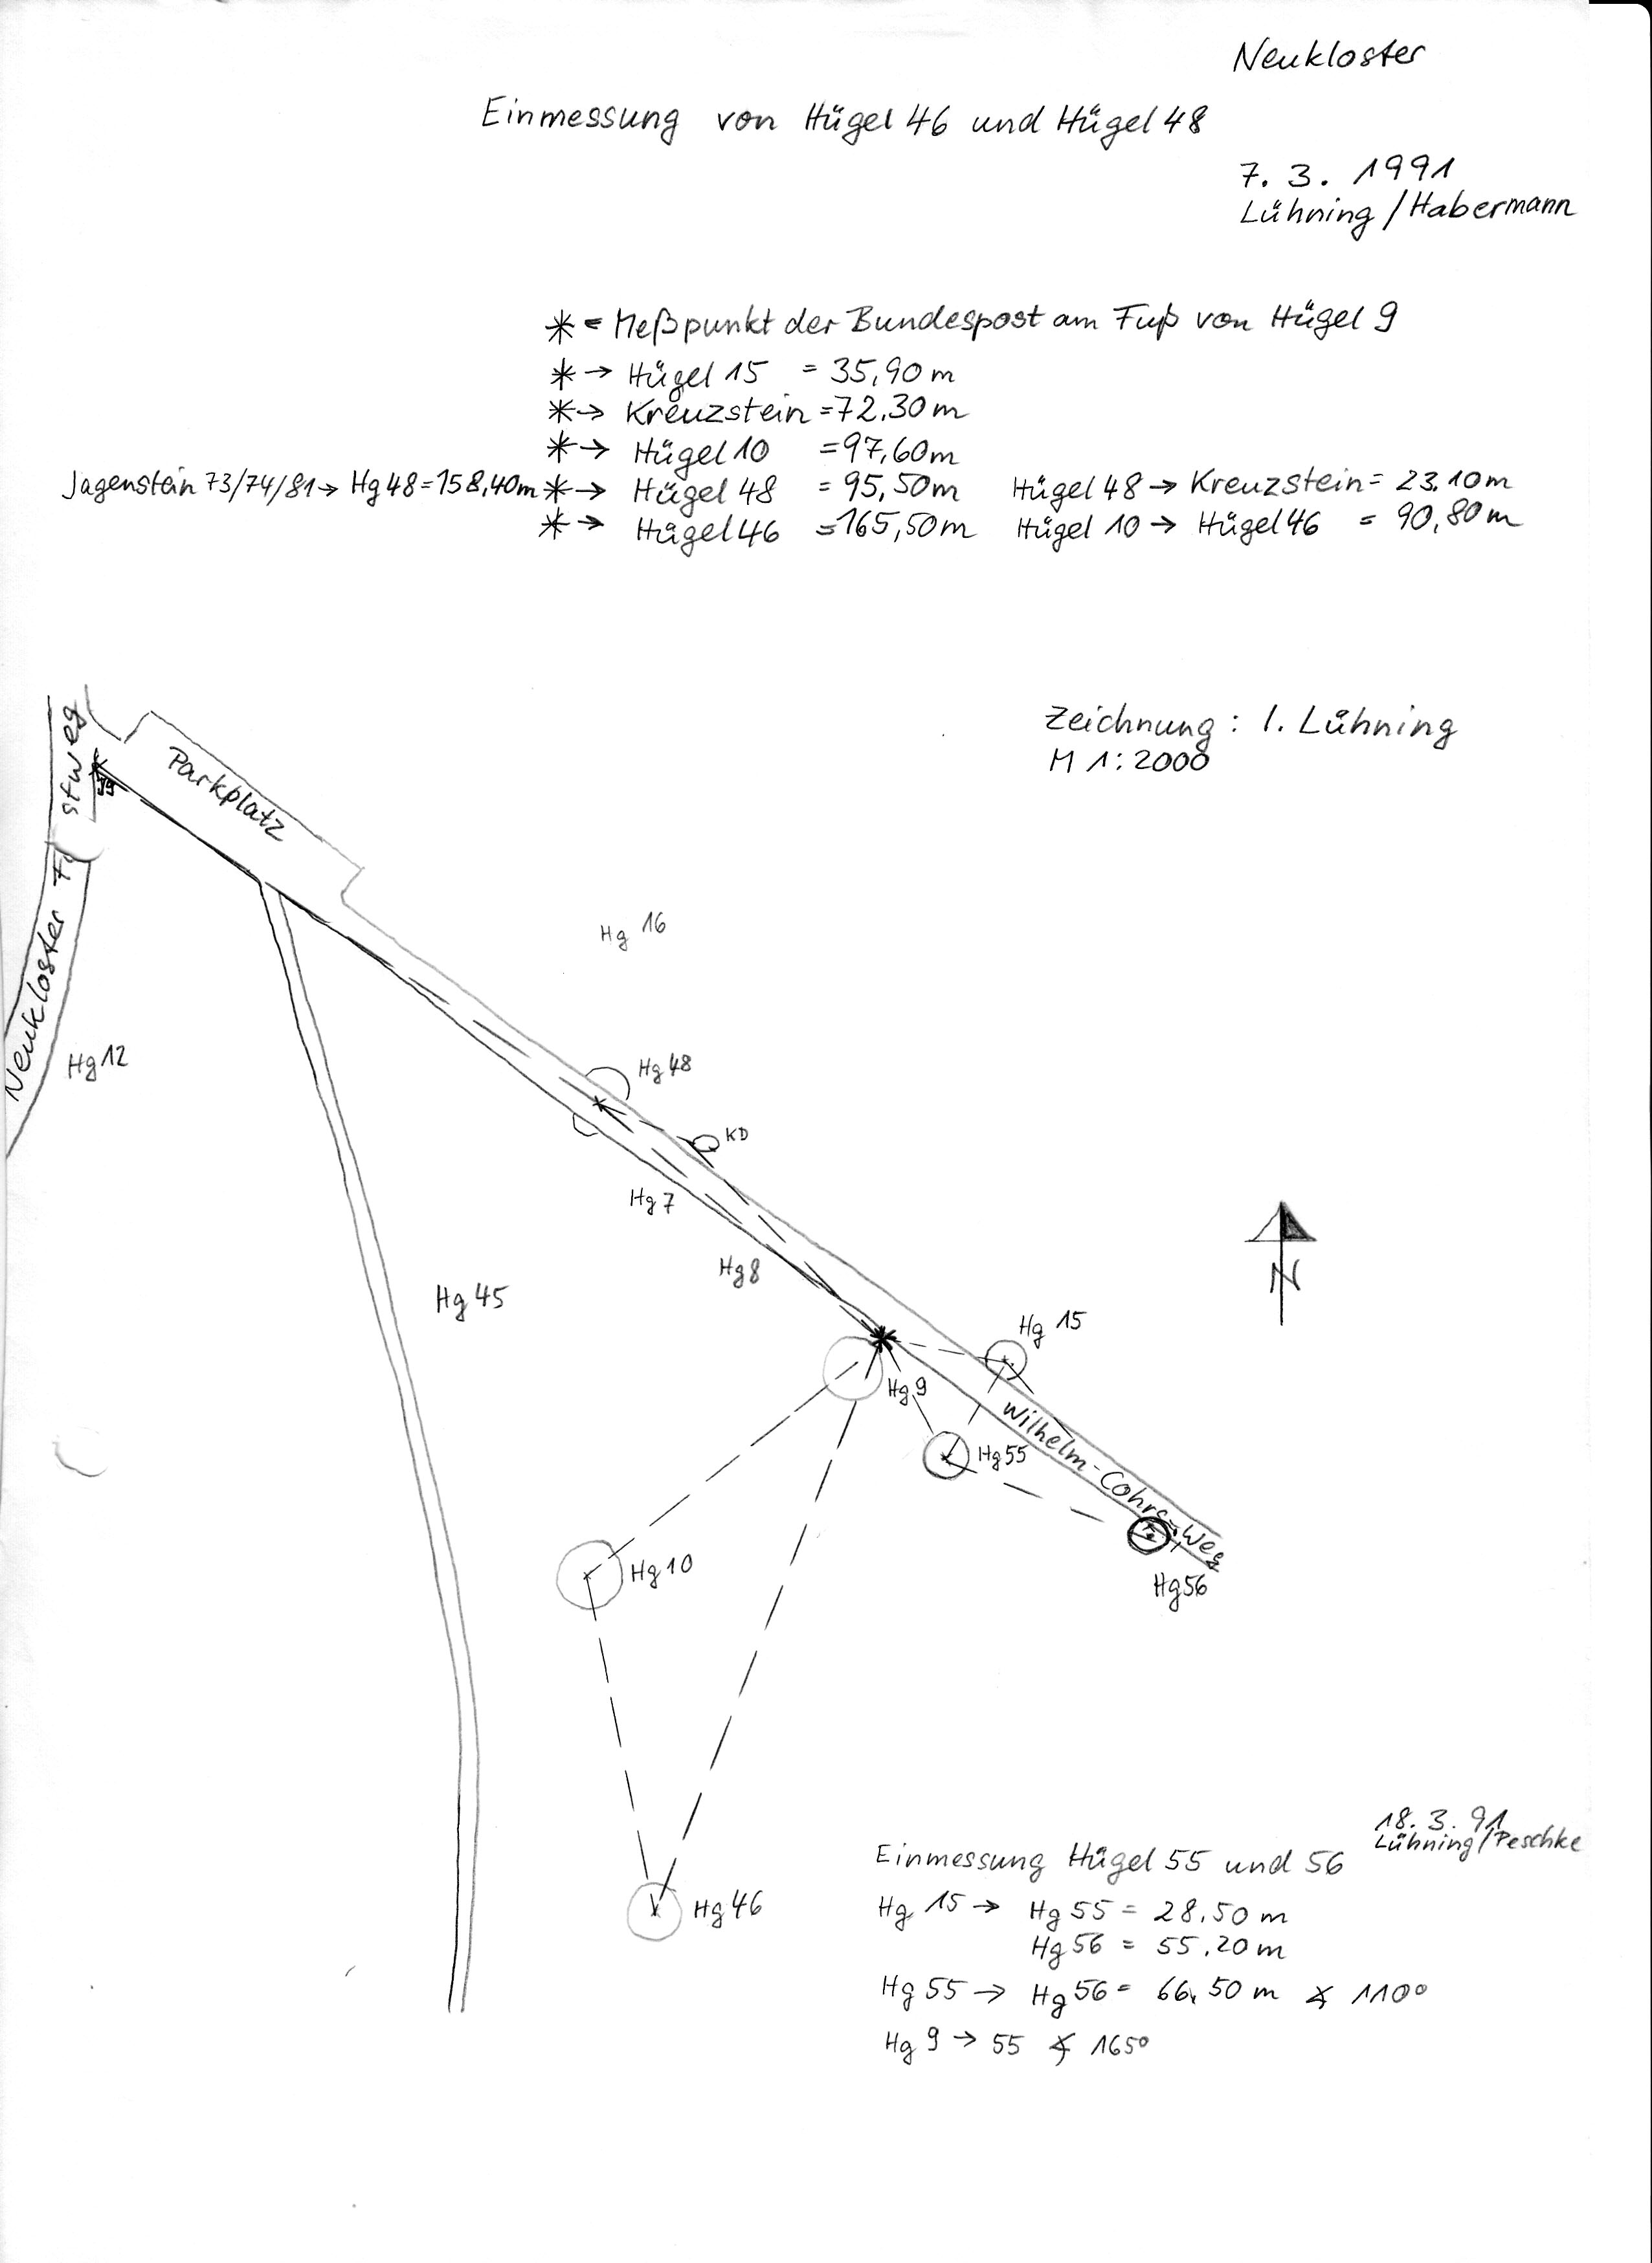 Neukloster
Einmessung von Hügel 46 und Hügel 48
7. 3. 1991
Lühning / Habermann
* = Meßpunkt der Bundespost am Fuß von Hügel 9
* → Hügel 15 = 35,90 m
* → Kreuzstein = 72,30 m
* → Hügel 10 = 97,60 m
Jagenstein 73/74/81 → Hg 48 = 158,40 m * → Hügel 48 = 95,50 m Hügel 48 → Kreuzstein = 23,10 m
* → Hügel 46 = 165,50 m Hügel 10 → Hügel 46 = 90,80 m
Zeichnung : I. Lühning
M 1:2000
Parkplatz
Neukloster Fo stweg
Hg 16
Hg 12
Hg 48
KD
Hg 7
Hg 8
Hg 45
N
Hg 15
Hg 9
Wilhelm-Cohrs-Weg
Hg 55
Hg 10
Hg 56
Hg 46
18. 3. 91
Lühning / Peschke
Einmessung Hügel 55 und 56
Hg 15 → Hg 55 = 28,50 m
Hg 56 = 55,20 m
Hg 55 → Hg 56 = 66,50 m ∡ 110°
Hg 9 → 55 ∡ 165°